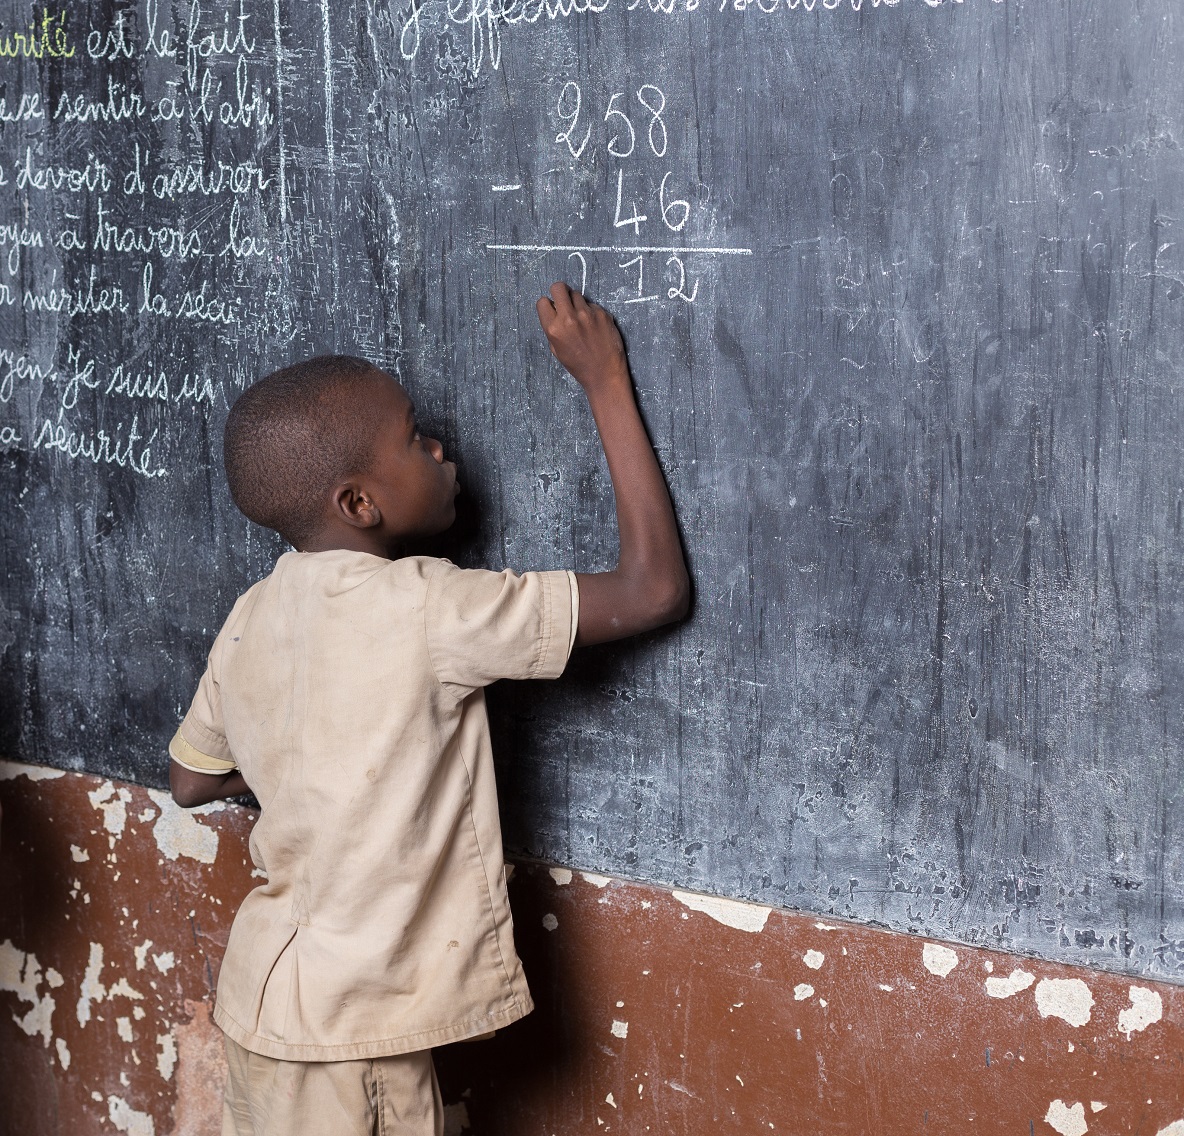 urité est le fait
se sentir à l'abri
devoir d'assurer
oyen à travers la
r mériter la sécu
yen. Je suis un
a sécurité.
J'effectue les
258
- 46
212